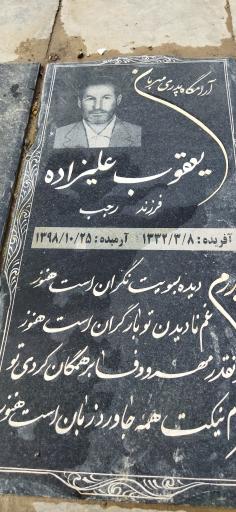 آرامگاه پدری مهربان
یعقوب علیزاده
فرزند رجب
آفریده : ۱۳۳۲/۳/۸ آرمیده : ۱۳۹۸/۱۰/۲۵
دیده بسویت نگران است هنوز
غم نادیدن تو بار گران است هنوز
آنقدر مهر و وفا بر همگان کردی تو
نام نیکت همه جا ورد زبان است هنوز